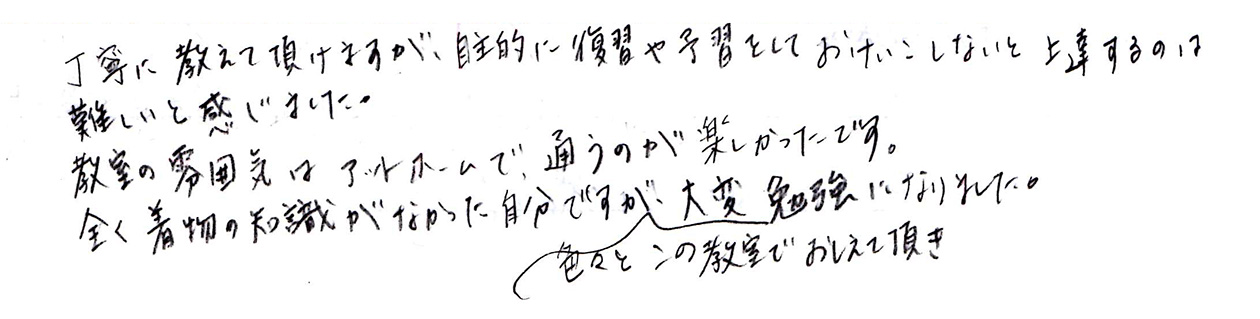 丁寧に教えて頂けますが、自主的に復習や予習をしておけいこしないと上達するのは
難しいと感じました。
教室の雰囲気はアットホームで、通うのが楽しかったです。
全く着物の知識がなかった自分ですが、大変勉強になりました。
色々とこの教室でおしえて頂き